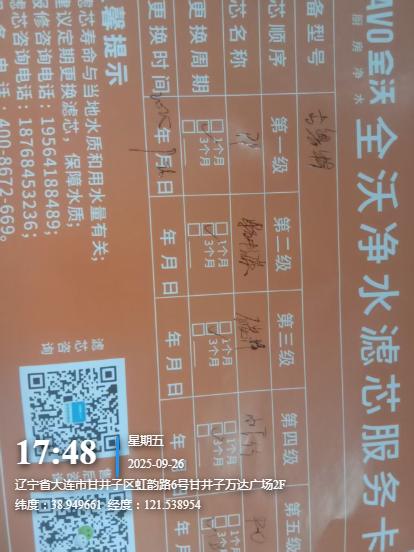 AVO全沃
厨房净水
全沃净水滤芯服务卡
备型号
芯顺序 第一级 第二级 第三级 第四级 第五级
芯名称
更换周期 1个月 3个月 1个月 3个月 1个月 3个月 1个月 3个月 1个月
更换时间 年 月 日 年 月 日 年 月 日 年 年 月
馨提示
滤芯寿命与当地水质和用水量有关;
建议定期更换滤芯,保障水质;
报修咨询电话:19564188489;
滤芯咨询电话:18768453236;
400-8672-669。
滤芯咨询
17:48
星期五
2025-09-26
辽宁省大连市甘井子区虹韵路6号甘井子万达广场2F
纬度:38.949661 经度:121.538954